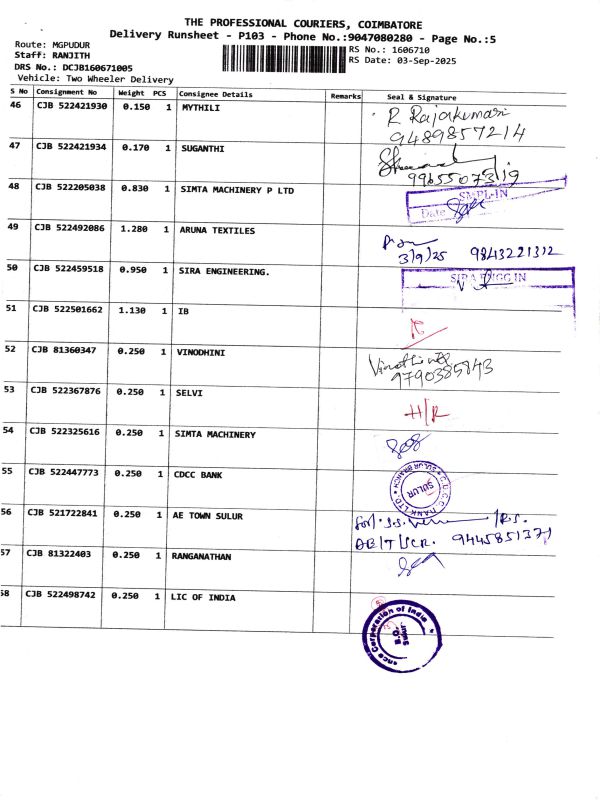 THE PROFESSIONAL COURIERS, COIMBATORE
Delivery Runsheet - P103 - Phone No.:9047080280 - Page No.:5
Route: MGPUDUR
Staff: RANJITH
DRS No.: DCJB160671005
Vehicle: Two Wheeler Delivery
RS No.: 1606710
RS Date: 03-Sep-2025
S No Consignment No Weight PCS Consignee Details Remarks Seal & Signature
46 CJB 522421930 0.150 1 MYTHILI R Rajakumari
9489857214
47 CJB 522421934 0.170 1 SUGANTHI
9965507319
48 CJB 522205038 0.830 1 SIMTA MACHINERY P LTD SMPL-IN
Date
49 CJB 522492086 1.280 1 ARUNA TEXTILES
3/9/25 9843221312
50 CJB 522459518 0.950 1 SIRA ENGINEERING. SIRA ENGG IN
51 CJB 522501662 1.130 1 IB
52 CJB 81360347 0.250 1 VINODHINI Vinothini
9790385843
53 CJB 522367876 0.250 1 SELVI H/R
54 CJB 522325616 0.250 1 SIMTA MACHINERY
55 CJB 522447773 0.250 1 CDCC BANK C.D.C.C. BANK LTD. SULUR BRANCH
SULUR
56 CJB 521722841 0.250 1 AE TOWN SULUR
9445851371
57 CJB 81322403 0.250 1 RANGANATHAN
58 CJB 522498742 0.250 1 LIC OF INDIA
nce Corporation of India
B.O.
SULUR